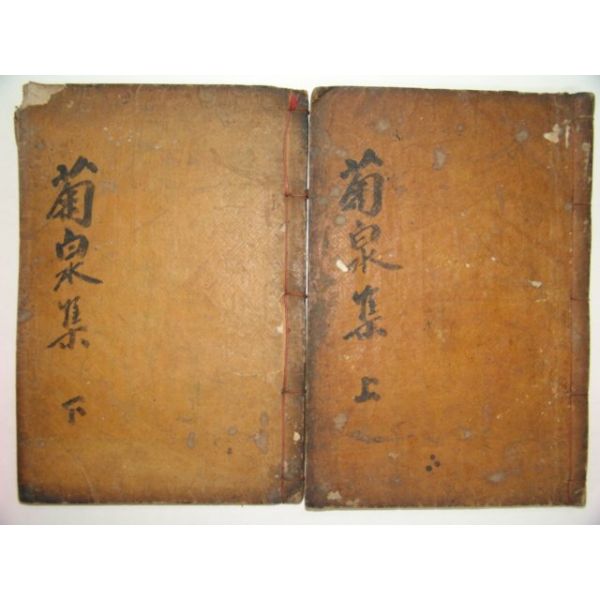 菊泉集 上
菊泉集 下